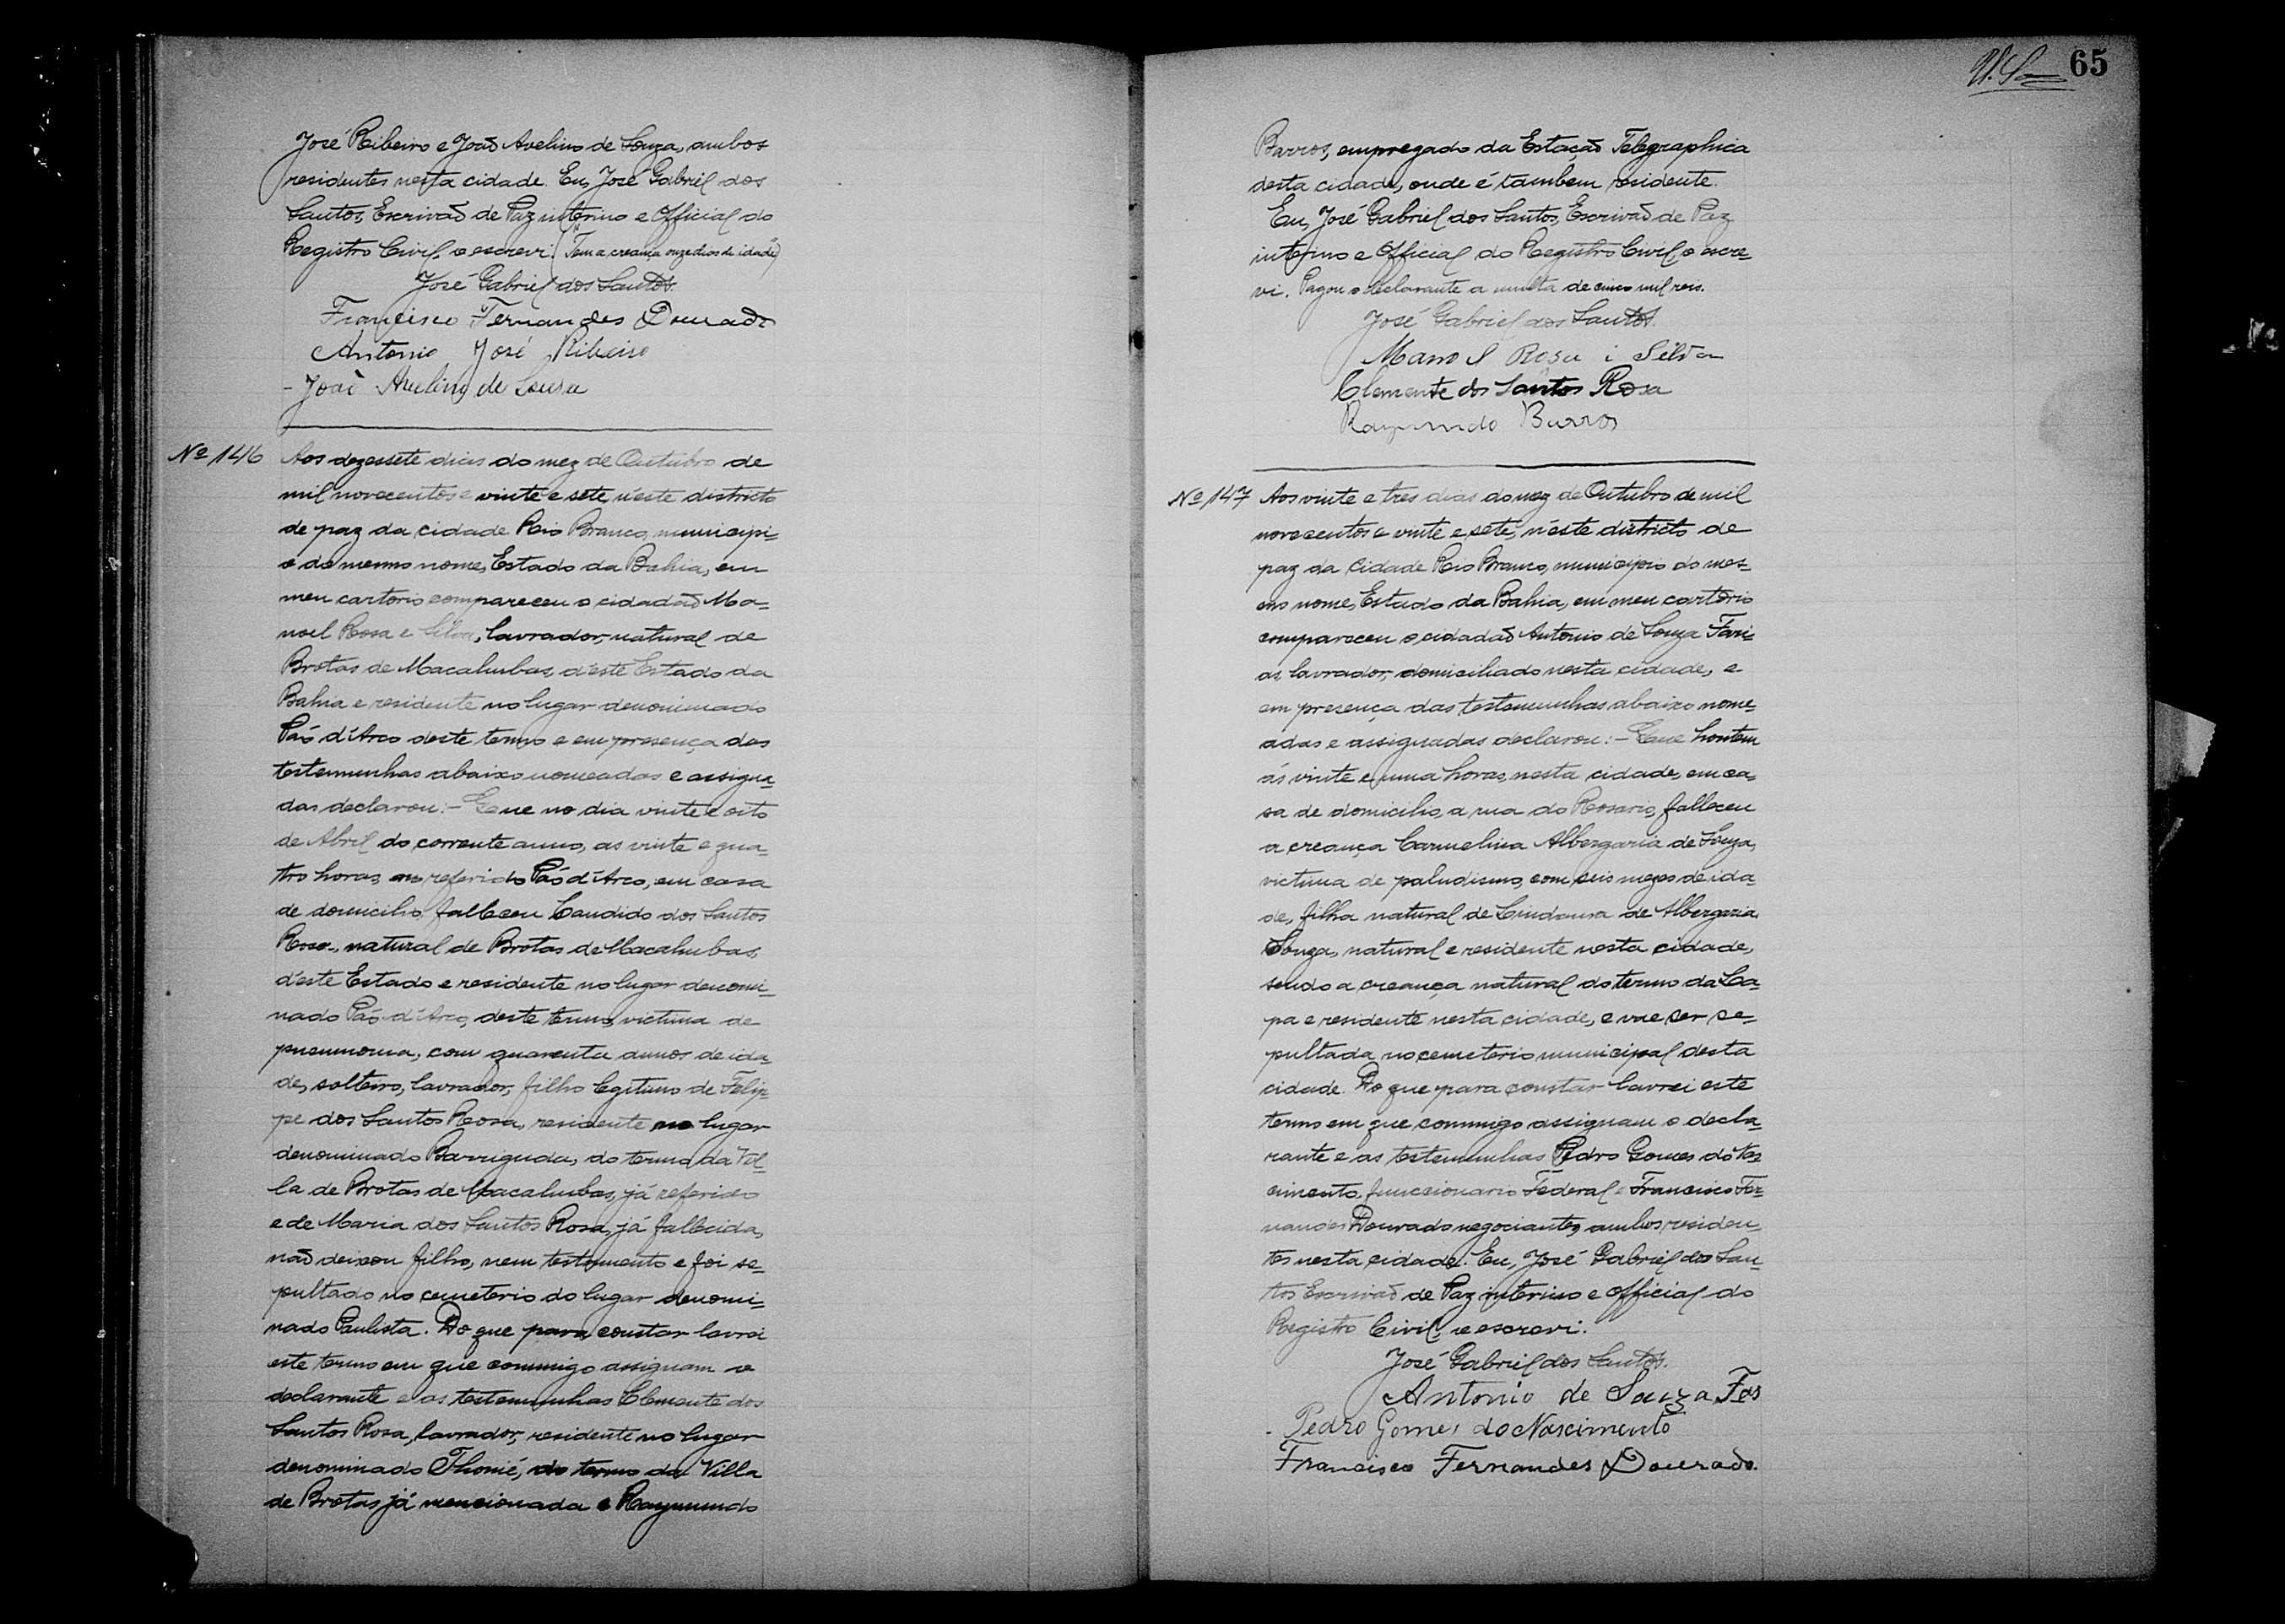 José Ribeiro e João Avelino de Souza, ambos
residentes nesta cidade. Eu, José Gabriel dos
Santos, Escrivão de Paz interino e Official do
Registro Civil, o escrevi. (Tem a creança onze dias de idade)
José Gabriel dos Santos.
Francisco Fernandes Dourado
Antonio José Ribeiro
- João Avelino de Sousa
Nº 146 Aos dezessete dias do mez de Outubro de
mil novecentos e vinte e sete, n'este districto
de paz da cidade Rio Branco, municipi-
o do mesmo nome, Estado da Bahia, em
meu cartorio compareceu o cidadão Ma-
noel Rosa e Silva, lavrador, natural de
Brotas de Macahubas, d'este Estado da
Bahia e residente no lugar denominado
Páo d'Arco deste termo e em presença das
testemunhas abaixo nomeadas e assigna-
das declarou: - Que no dia vinte e oito
de Abril do corrente anno, as vinte e qua-
tro horas, no referido Páo d'Arco, em casa
de domicilio, falleceu Candido dos Santos
Rosa, natural de Brotas de Macahubas,
d'este Estado e residente no lugar denomi-
nado Páo d'Arco, deste termo, victima de
pneumonia, com quarenta annos de ida-
de, solteiro, lavrador, filho legitimo de Felip-
pe dos Santos Rosa, residente no lugar
denominado Barriguda, do termo da Vil-
la de Brotas de Macahubas, já referido
e de Maria dos Santos Rosa, já fallecida,
não deixou filho, nem testamento e foi se-
pultado no cemeterio do lugar denomi-
nado Paulista. Do que para constar lavrei
este termo em que commigo assignam o
declarante e as testemunhas Clemente dos
Santos Rosa, lavrador, residente no lugar
denominado Thomé, do termo da Villa
de Brotas já mencionada e Raymundo
65
Barros, empregado da Estação Telegraphica
desta cidade, onde é tambem residente.
Eu, José Gabriel dos Santos, Escrivão de Paz
interino e Official do Registro Civil, o escre-
vi. Pagou o declarante a multa de cinco mil reis.
José Gabriel dos Santos.
Manoel Rosa i Silva
Clemente dos Santos Rosa
Raymundo Barros
Nº 147 Aos vinte e tres dias do mez de Outubro de mil
novecentos e vinte e sete, n'este districto de
paz da cidade Rio Branco, municipio do mes-
mo nome, Estado da Bahia, em meu cartorio
compareceu o cidadão Antonio de Souza Fari-
as, lavrador, domiciliado nesta cidade, e
em presença das testemunhas abaixo nome-
adas e assignadas declarou: - Que hontem
ás vinte e uma horas, nesta cidade, em ca-
sa de domicilio, a rua do Rosario, falleceu
a creança Carmelina Albergaria de Souza,
victima de paludismo, com seis mezes de ida-
de, filha natural de Lindaura de Albergaria
Souza, natural e residente nesta cidade,
sendo a creança natural do termo da La-
pa e residente nesta cidade, e vae ser se-
pultada no cemeterio municipal desta
cidade. Do que para constar lavrei este
termo em que commigo assignam o decla-
rante e as testemunhas Pedro Gomes do Nas-
cimento, funccionario Federal e Francisco Fer-
nandes Dourado negociante, ambos residen-
tes nesta cidade. Eu, José Gabriel dos San-
tos Escrivão de Paz interino e Official do
Registro Civil, o escrevi.
José Gabriel dos Santos.
Antonio de Souza Fas
- Pedro Gomes do Nascimento
Francisco Fernandes Dourado.